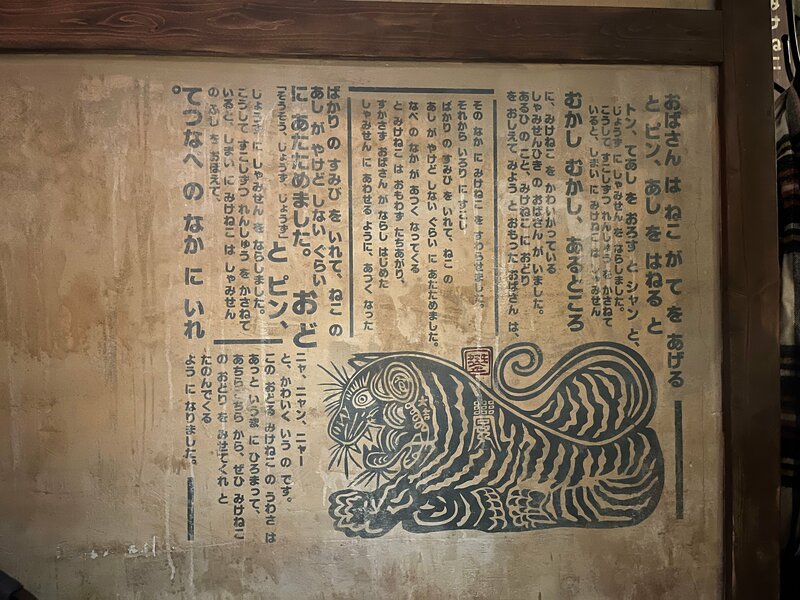 おばさん は ねこ が て を あげる
と ピン、あし を はねる と
トン、てあし を おろす と シャン と、
じょうず に しゃみせん を ならしました。
こうして すこしずつ れんしゅう を かさねて
いると、しまい に みけねこ は しゃみせん
むかし むかし、ある ところ
に、みけねこ を かわいがっている
しゃみせんひき の おばさん が いました。
あるひ の こと、みけねこ に おどり
を おしえて みよう と おもった おばさん は、
その なか に みけねこ を すわらせました。
それから いろり に すこし
ばかり の すみび を いれて、ねこ の
あし が やけど しない ぐらい に あたためました。
なべ の なか が あつく なってくる
と みけねこ は おもわず たちあがり、
すかさず おばさん が ならし はじめた
しゃみせん に あわせる ように、あつく なった
ばかり の すみび を いれて、ねこ の
あし が やけど しない ぐらい
に あたためました。 おど
「そうそう、じょうず、じょうず」 と ピン、
じょうず に しゃみせん を ならしました。
こうして すこしずつ れんしゅう を かさねて
いると、しまい に みけねこ は しゃみせん
の ふし を おぼえて、
てつなべ の なか に いれ
。
ニャ、ニャン、ニャー
と、かわいく いう の です。
この おどる みけねこ の うわさ は
あっと いう 間 に ひろまって、
あちらこちら から、ぜひ みけねこ
の おどり を みせてくれ と
たのんでくる
ように なりました。
大吉